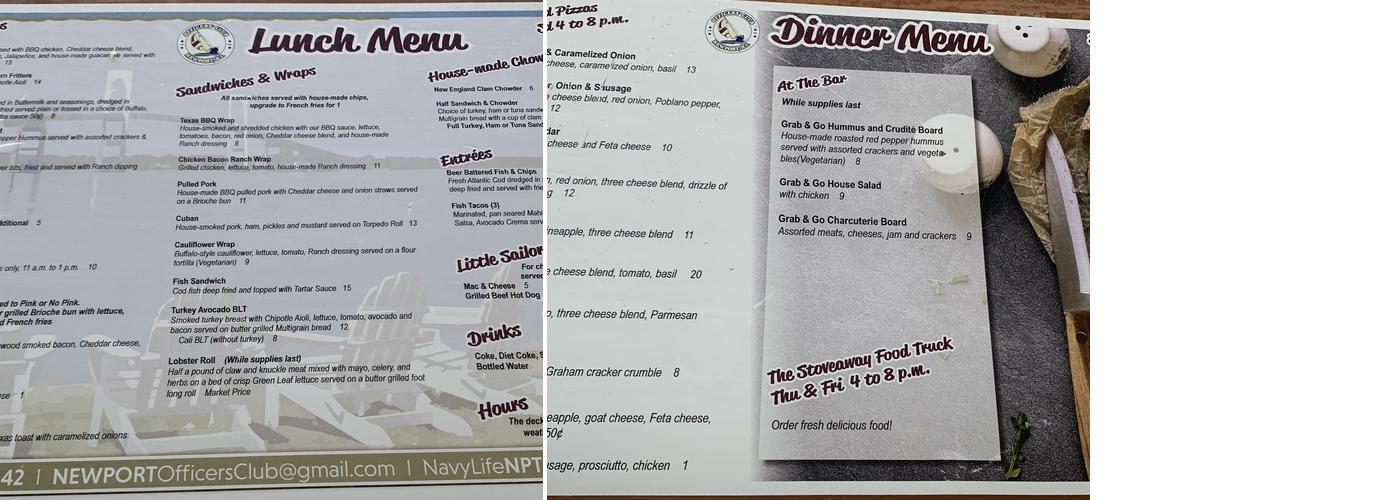 ed with BBQ chicken, Cheddar cheese blend,
, Jalapeños, and house-made guacamole served with
15
rn Fritters
potle Aioli 14
ed in Buttermilk and seasonings, dredged in
fried served plain or tossed in a choice of Buffalo,
tra sauce 50¢) 8
epper Hummus served with assorted crackers &
er bits, fried and served with Ranch dipping
dditional 5
s only, 11 a.m. to 1 p.m. 10
ed to Pink or No Pink.
r grilled Brioche bun with lettuce,
d French fries
wood smoked bacon, Cheddar cheese,
se 1
xas toast with caramelized onions
OFFICERS' CLUB
NEWPORT, RI
Lunch Menu
Sandwiches & Wraps
All sandwiches served with house-made chips,
upgrade to French fries for 1
Texas BBQ Wrap
House-smoked and shredded chicken with our BBQ sauce, lettuce,
tomatoes, bacon, red onion, Cheddar cheese blend, and house-made
Ranch dressing 8
Chicken Bacon Ranch Wrap
Grilled chicken, lettuce, tomato, house-made Ranch dressing 11
Pulled Pork
House-made BBQ pulled pork with Cheddar cheese and onion straws served
on a Brioche bun 11
Cuban
House-smoked pork, ham, pickles and mustard served on Torpedo Roll 13
Cauliflower Wrap
Buffalo-style cauliflower, lettuce, tomato, Ranch dressing served on a flour
tortilla (Vegetarian) 9
Fish Sandwich
Cod fish deep fried and topped with Tartar Sauce 15
Turkey Avocado BLT
Smoked turkey breast with Chipotle Aioli, lettuce, tomato, avocado and
bacon served on butter grilled Multigrain bread 12
Cali BLT (without turkey) 8
Lobster Roll (While supplies last)
Half a pound of claw and knuckle meat mixed with mayo, celery, and
herbs on a bed of crisp Green Leaf lettuce served on a butter grilled foot
long roll Market Price
House-made Chow
New England Clam Chowder 6
Half Sandwich & Chowder
Choice of turkey, ham or tuna sandw
Multigrain bread with a cup of clam
Full Turkey, Ham or Tuna Sand
Entrées
Beer Battered Fish & Chips
Fresh Atlantic Cod dredged in
deep fried and served with frie
Fish Tacos (3)
Marinated, pan seared Mahi
Salsa, Avocado Crema serv
Little Sailor
For ch
serve
Mac & Cheese 5
Grilled Beef Hot Dog
Drinks
Coke, Diet Coke, S
Bottled Water
Hours
The deck
weat
42 | NEWPORTOfficersClub@gmail.com | NavyLifeNPT
d Pizzas
d 4 to 8 p.m.
& Caramelized Onion
cheese, caramelized onion, basil 13
r, Onion & Sausage
e cheese blend, red onion, Poblano pepper,
12
dar
cheese and Feta cheese 10
n, red onion, three cheese blend, drizzle of
g 12
ineapple, three cheese blend 11
e cheese blend, tomato, basil 20
o, three cheese blend, Parmesan
Graham cracker crumble 8
eapple, goat cheese, Feta cheese,
50¢
usage, prosciutto, chicken 1
OFFICERS' CLUB
NEWPORT, RI
Dinner Menu
At The Bar
While supplies last
Grab & Go Hummus and Crudité Board
House-made roasted red pepper hummus
served with assorted crackers and vegeta-
bles(Vegetarian) 8
Grab & Go House Salad
with chicken 9
Grab & Go Charcuterie Board
Assorted meats, cheeses, jam and crackers 9
The Stoveaway Food Truck
Thu & Fri 4 to 8 p.m.
Order fresh delicious food!